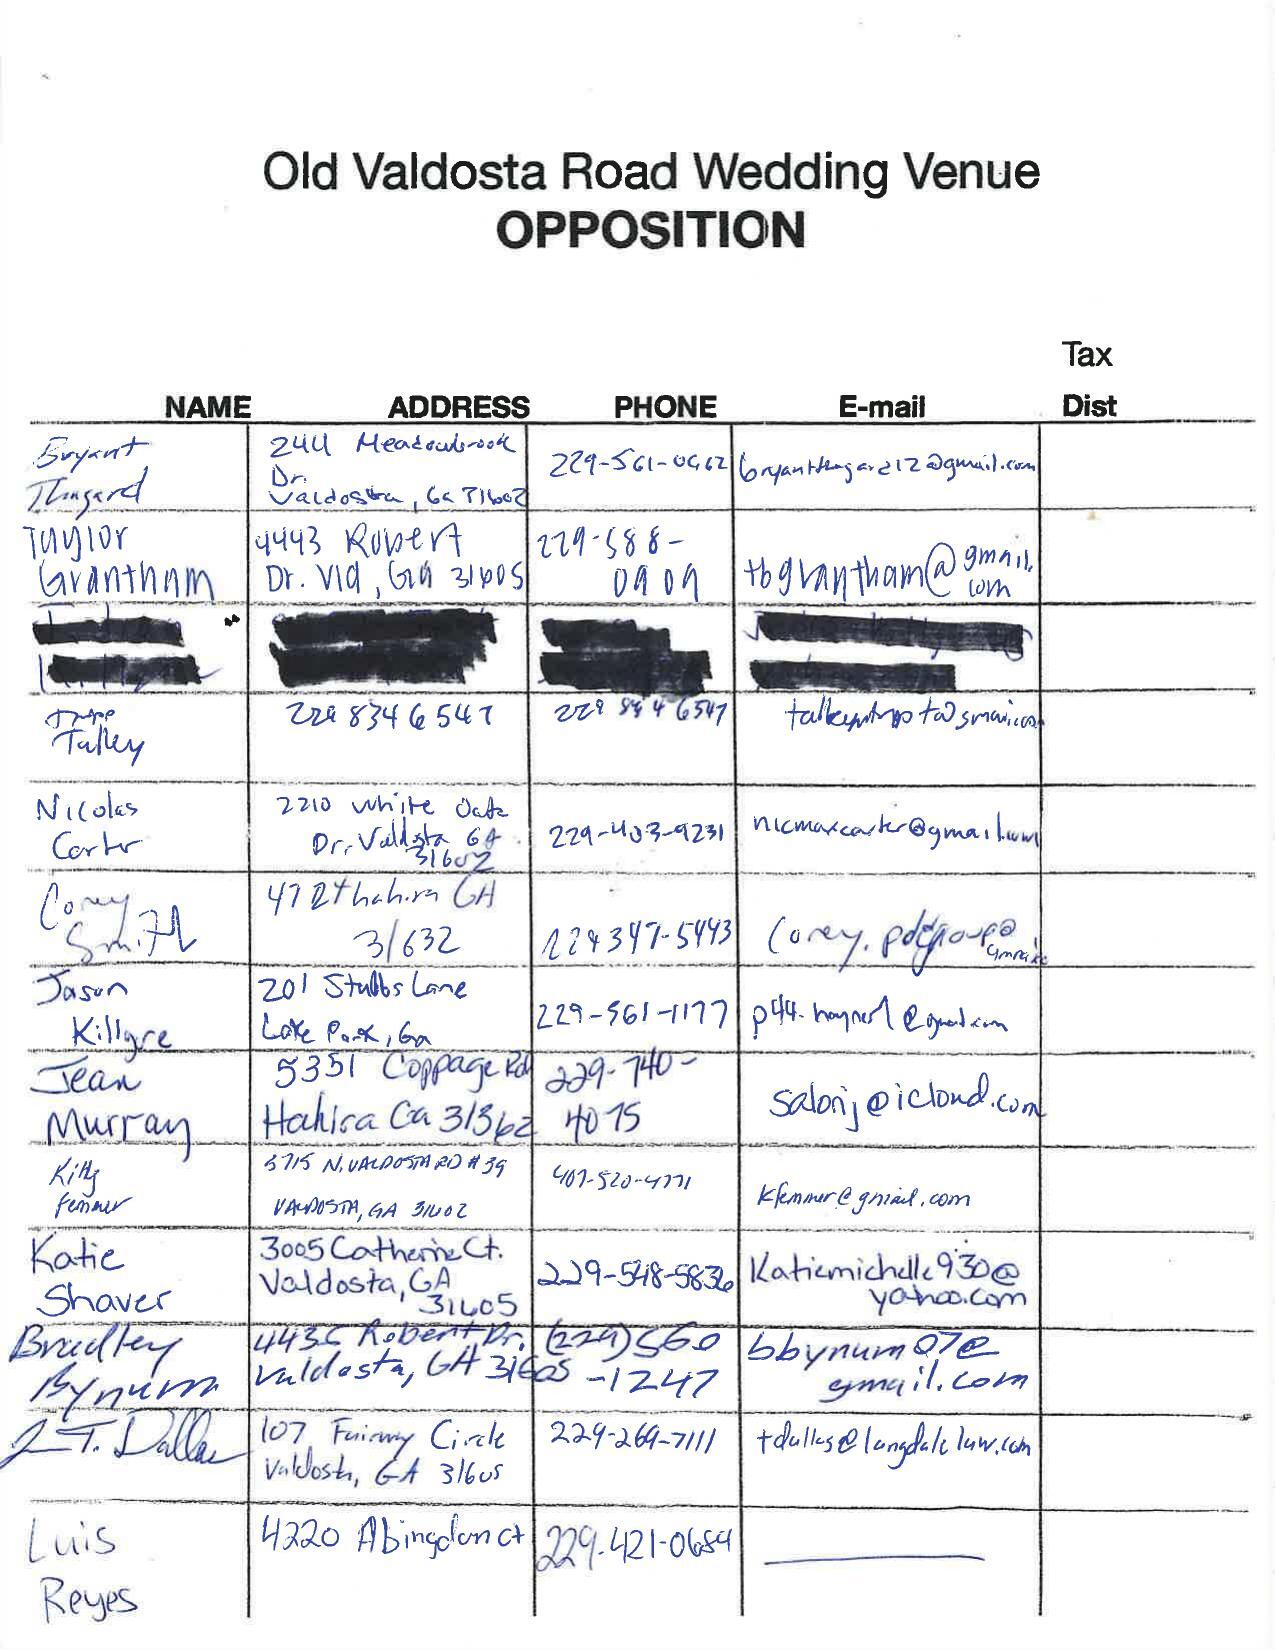 Old Valdosta Road Wedding Venue
OPPOSITION
Tax
NAME ADDRESS PHONE E-mail Dist
Bryant 244 Meadowbrook
Dr. 229-561-0962
Valdosta, Ga 31602
Taylor 4443 Robert 229-588-
Grantham Dr. Vld, GA 31605 0909 tbgrantham@gmail.
com
Talley 229 834 6547 229 834 6547
Nicolas 2210 White Oak
Carter Dr. Valdosta GA 229-403-9231 nicmaxcarter@gmail.com
31602
Corey
Smith 31632 229 347-5443 Corey.pdggroup@
Jason 201 Stubbs Lane
Killgre Lake Park, Ga 229-561-1177
Jean 5351 Coppage Rd 229-740-
Murray Hahira Ga 31362 4075 salonj@icloud.com
Kitty 5715 N. VALDOSTA RD #39 407-520-4771
Femmer VALDOSTA, GA 31602 kfemmer@gmail.com
Katie 3005 Catherine Ct.
Shaver Valdosta, GA 229-548-5836 Katiemichelle930@
31605 yahoo.com
Bradley 4435 Robert Dr. (229) 560 bbynum07@
Bynum Valdosta, GA 31605 -1247 gmail.com
J.T. Dallas 107 Fairway Circle 229-269-7111 tdallas@langdalelaw.com
Valdosta, GA 31605
Luis 4220 Abingdon ct 229-421-0684
Reyes